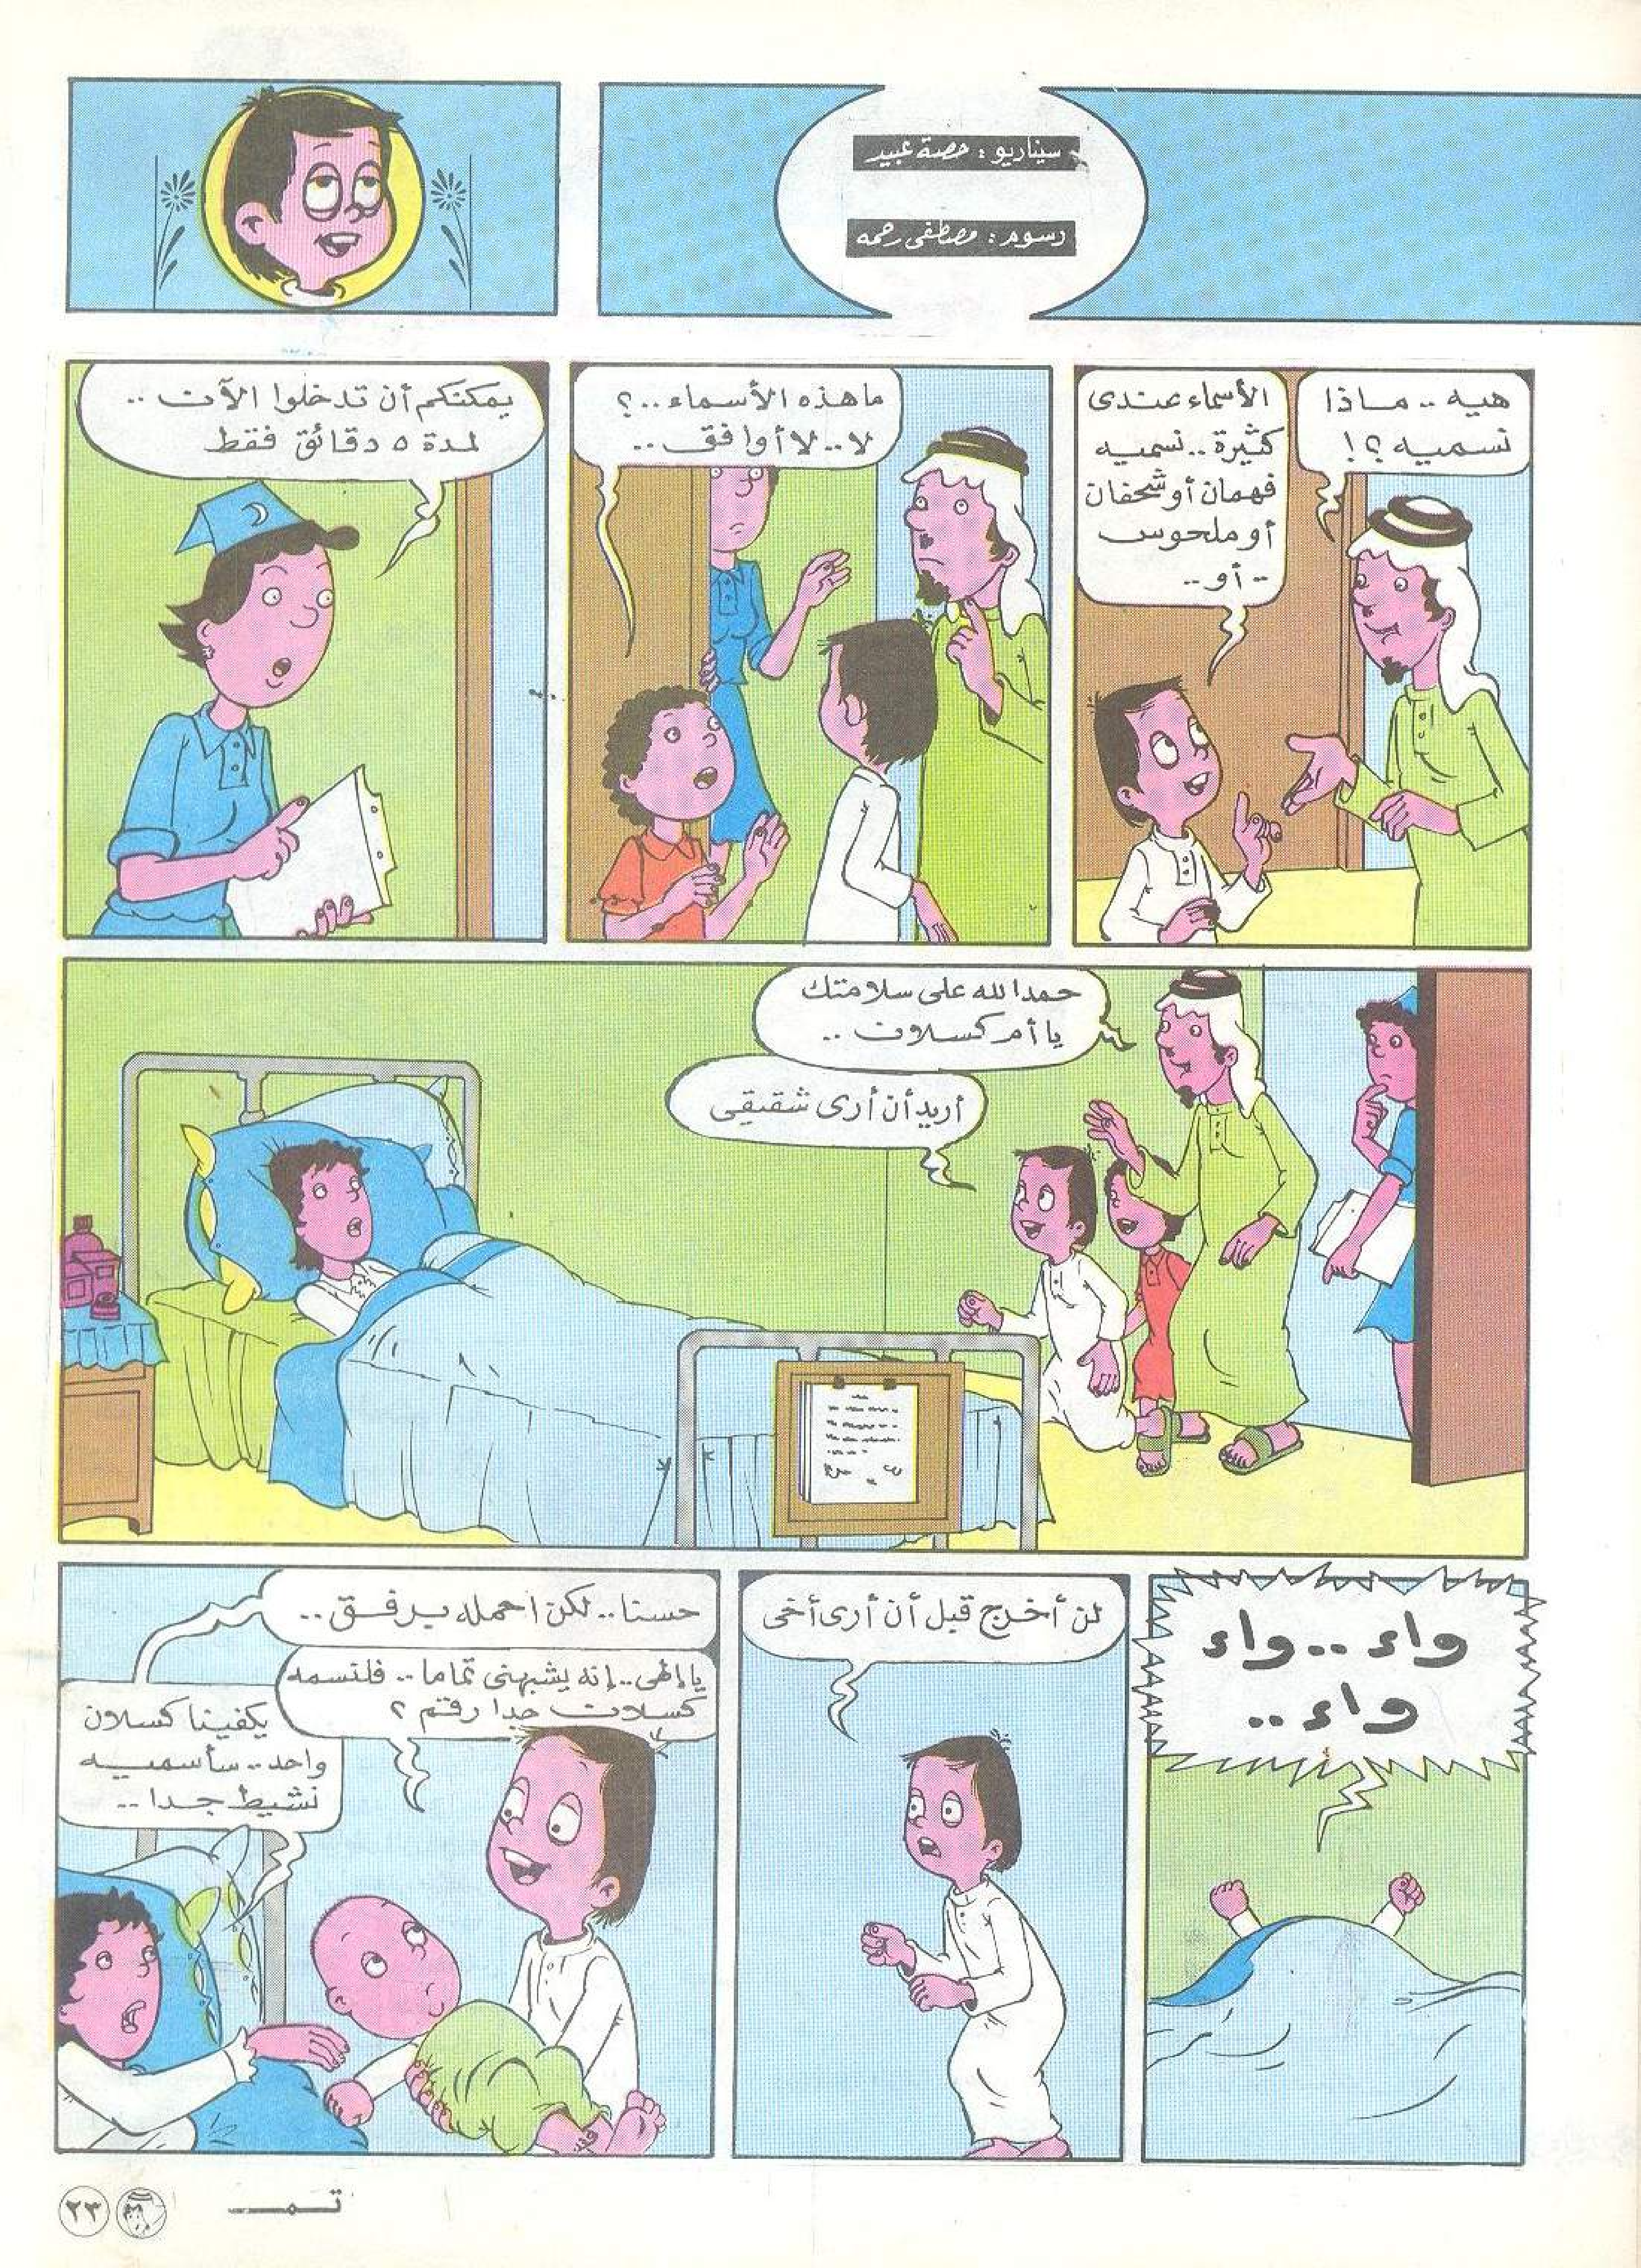 سيناريو : حصة عبيد
رسوم : مصطفى رحمه
هيه .. ماذا
نسميه ؟!
الأسماء عندى
كثيرة .. نسميه
فهمان أو شحفان
أو ملحوس
.. أو ..
ما هذه الأسماء .. ؟
لا .. لا أوافق ..
يمكنكم أن تدخلوا الآن ..
لمدة ٥ دقائق فقط
حمدا لله على سلامتك
يا أم كسلان ..
أريد أن أرى شقيقى
واء .. واء
واء ..
لن أخرج قبل أن أرى أخى
حسنا .. لكن احمله برفق ..
يا إلهى .. إنه يشبهنى تماما .. فلنسمه
كسلان جدا رقم ٢
يكفينا كسلان
واحد .. سأسميه
نشيط جدا ..
تمـــ
٢٣